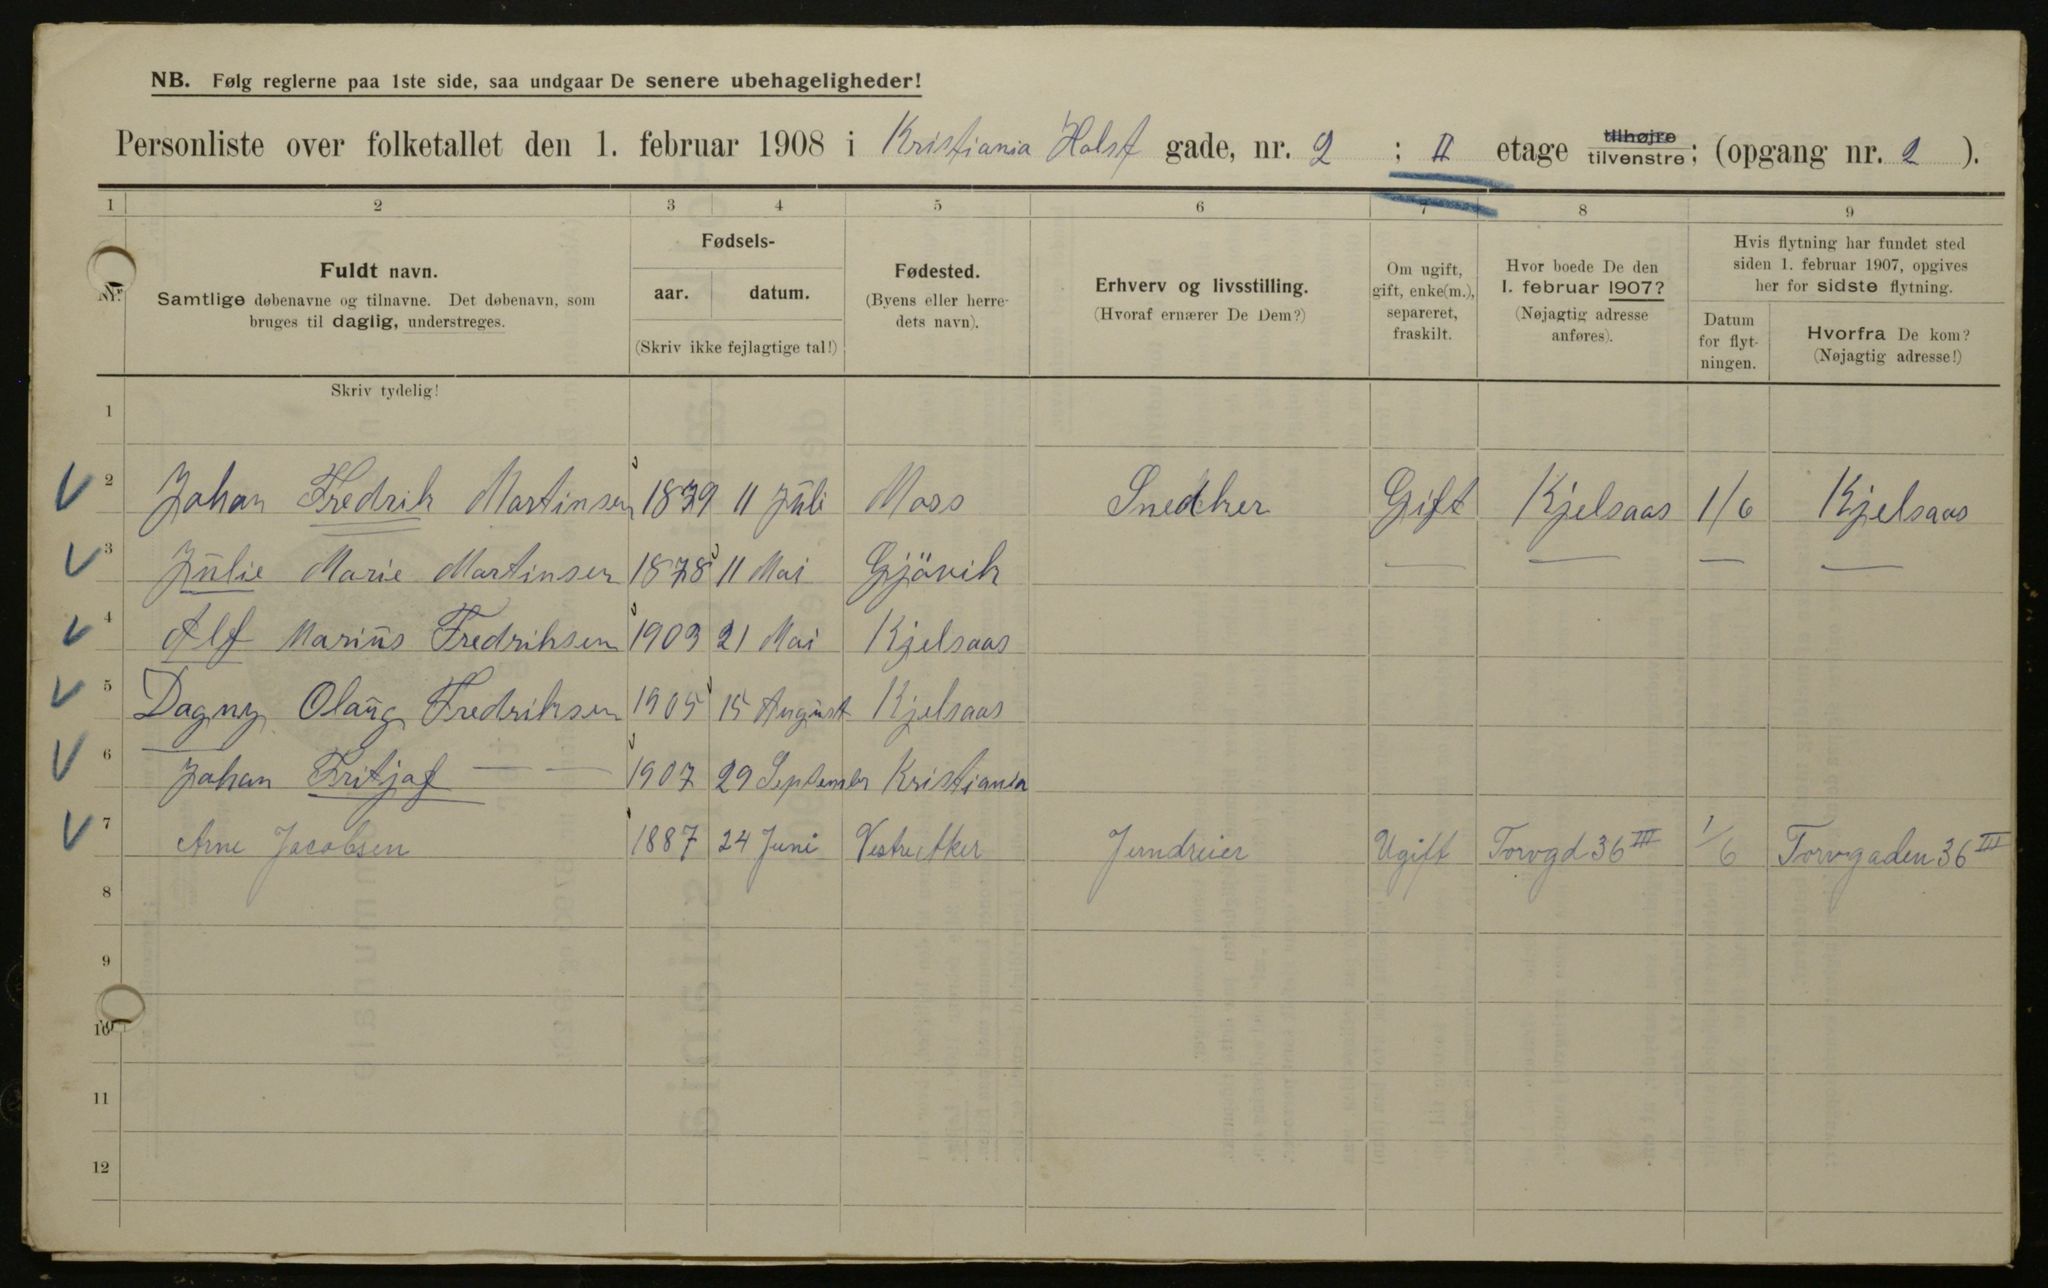 NB. Følg reglerne paa 1ste side, saa undgaar De senere ubehageligheder!
Personliste over folketallet den 1. februar 1908 i Kristiania Holst gade, nr. 2 ; II etage tilhøjre tilvenstre; (opgang nr. 2 ).
1 2 3 4 5 6 7 8 9
Nr.
Fuldt navn.
Samtlige døbenavne og tilnavne. Det døbenavn, som
bruges til daglig, understreges.
Fødsels-
aar. datum.
(Skriv ikke fejlagtige tal!)
Fødested.
(Byens eller herre-
dets navn).
Erhverv og livsstilling.
(Hvoraf ernærer De Dem?)
Om ugift,
gift, enke(m.),
separeret,
fraskilt.
Hvor boede De den
1. februar 1907?
(Nøjagtig adresse
anføres).
Hvis flytning har fundet sted
siden 1. februar 1907, opgives
her for sidste flytning.
Datum
for flyt-
ningen.
Hvorfra De kom?
(Nøjagtig adresse!)
Skriv tydelig!
1
2 Johan Fredrik Martinsen 1879 11 Juli Moss Snedker Gift Kjelsaas 1/6 Kjelsaas
3 Julie Marie Martinsen 1878 11 Mai Gjövik — — — —
4 Alf Marius Fredriksen 1903 21 Mai Kjelsaas
5 Dagny Olaug Fredriksen 1905 15 August Kjelsaas
6 Johan Fritjof — — 1907 29 September Kristiania
7 Arne Jacobsen 1887 24 Juni Vestre Aker Jerndreier Ugift Torvgd 36 III 1/6 Torvgaden 36 III
8
9
10
11
12